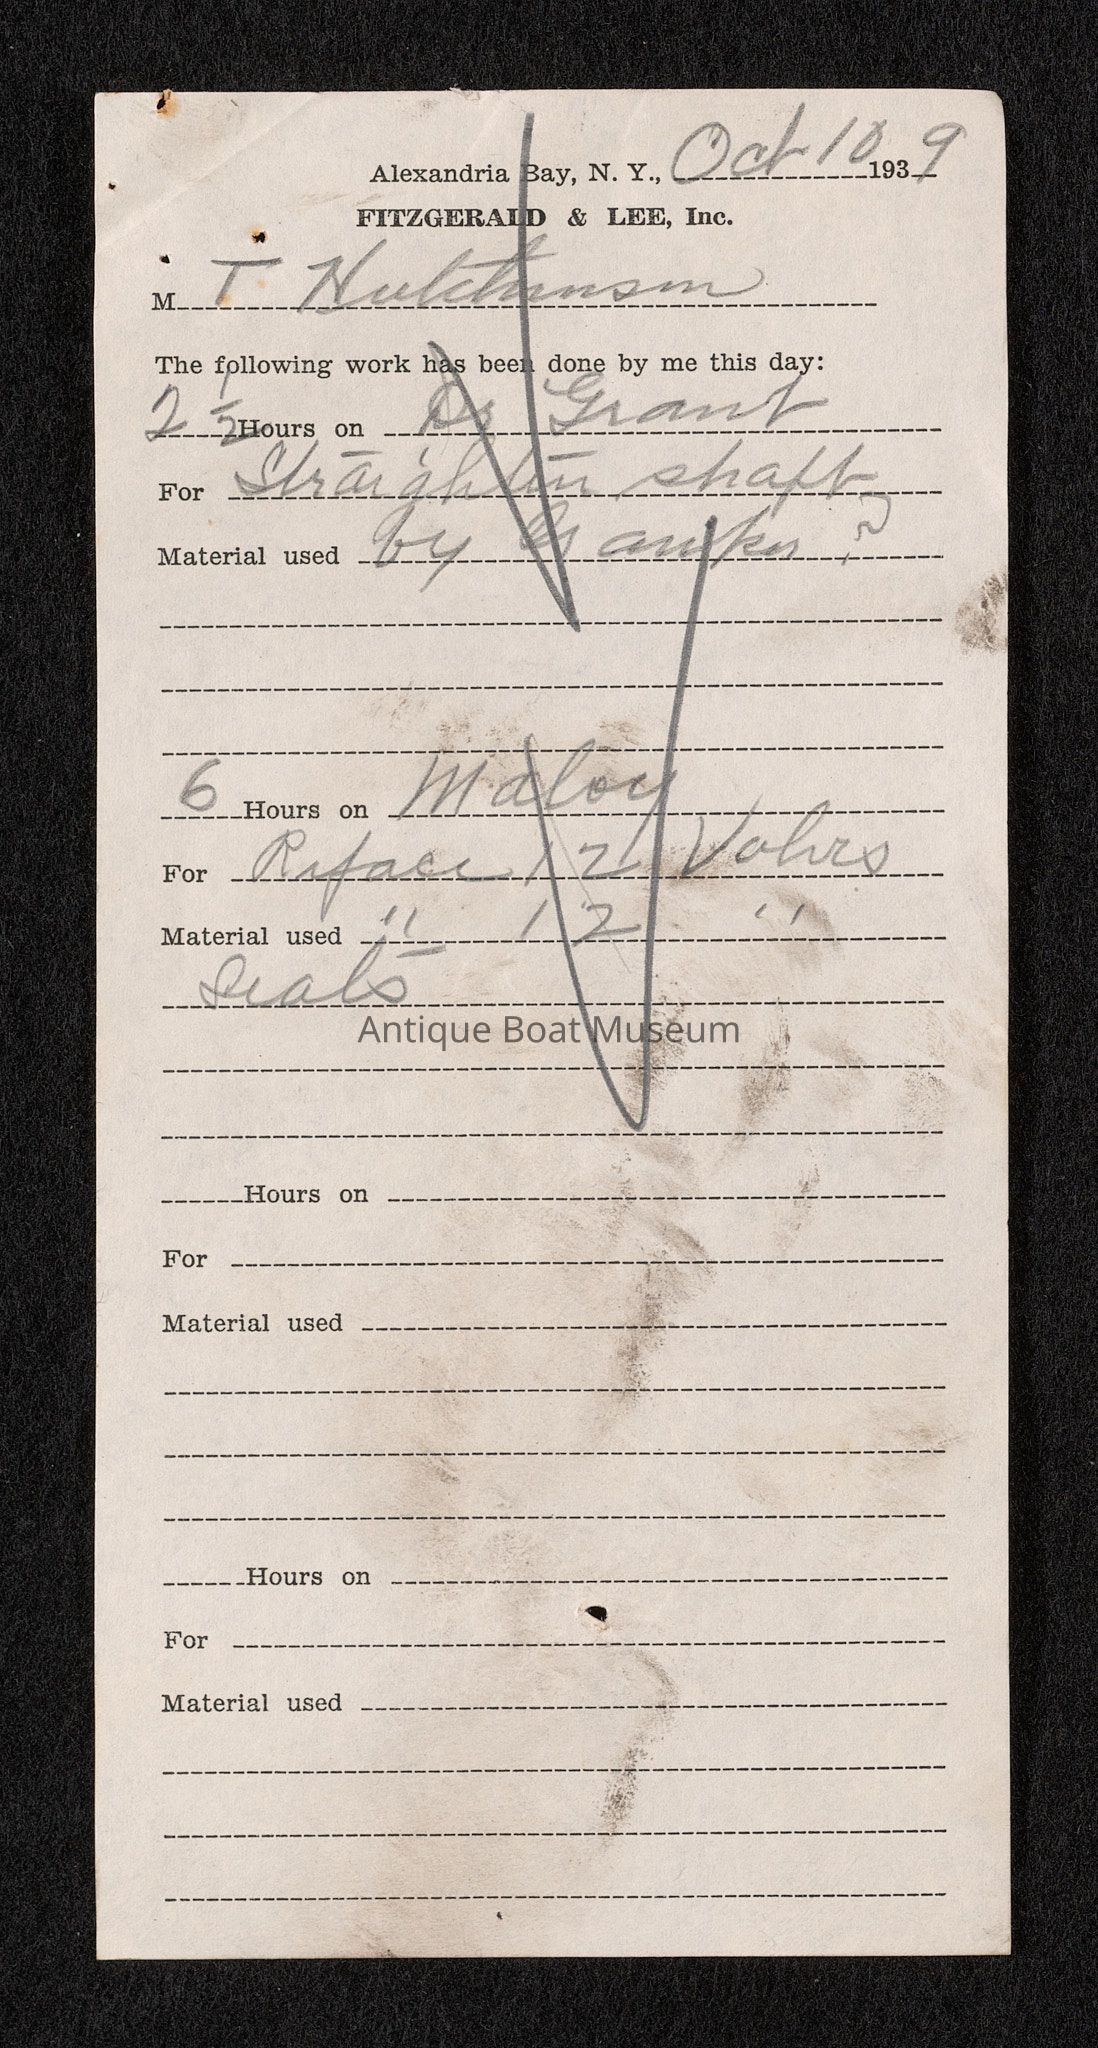 Alexandria Bay, N. Y., Oct 10 1939
FITZGERALD & LEE, Inc.
M T Hutchinson
The following work has been done by me this day:
2 1/2 Hours on Dr Grant
For Straighten shaft
Material used by ?
6 Hours on Maloy
For Reface 12 Valves
Material used " 12 "
Seats
Antique Boat Museum
Hours on
For
Material used
Hours on
For
Material used